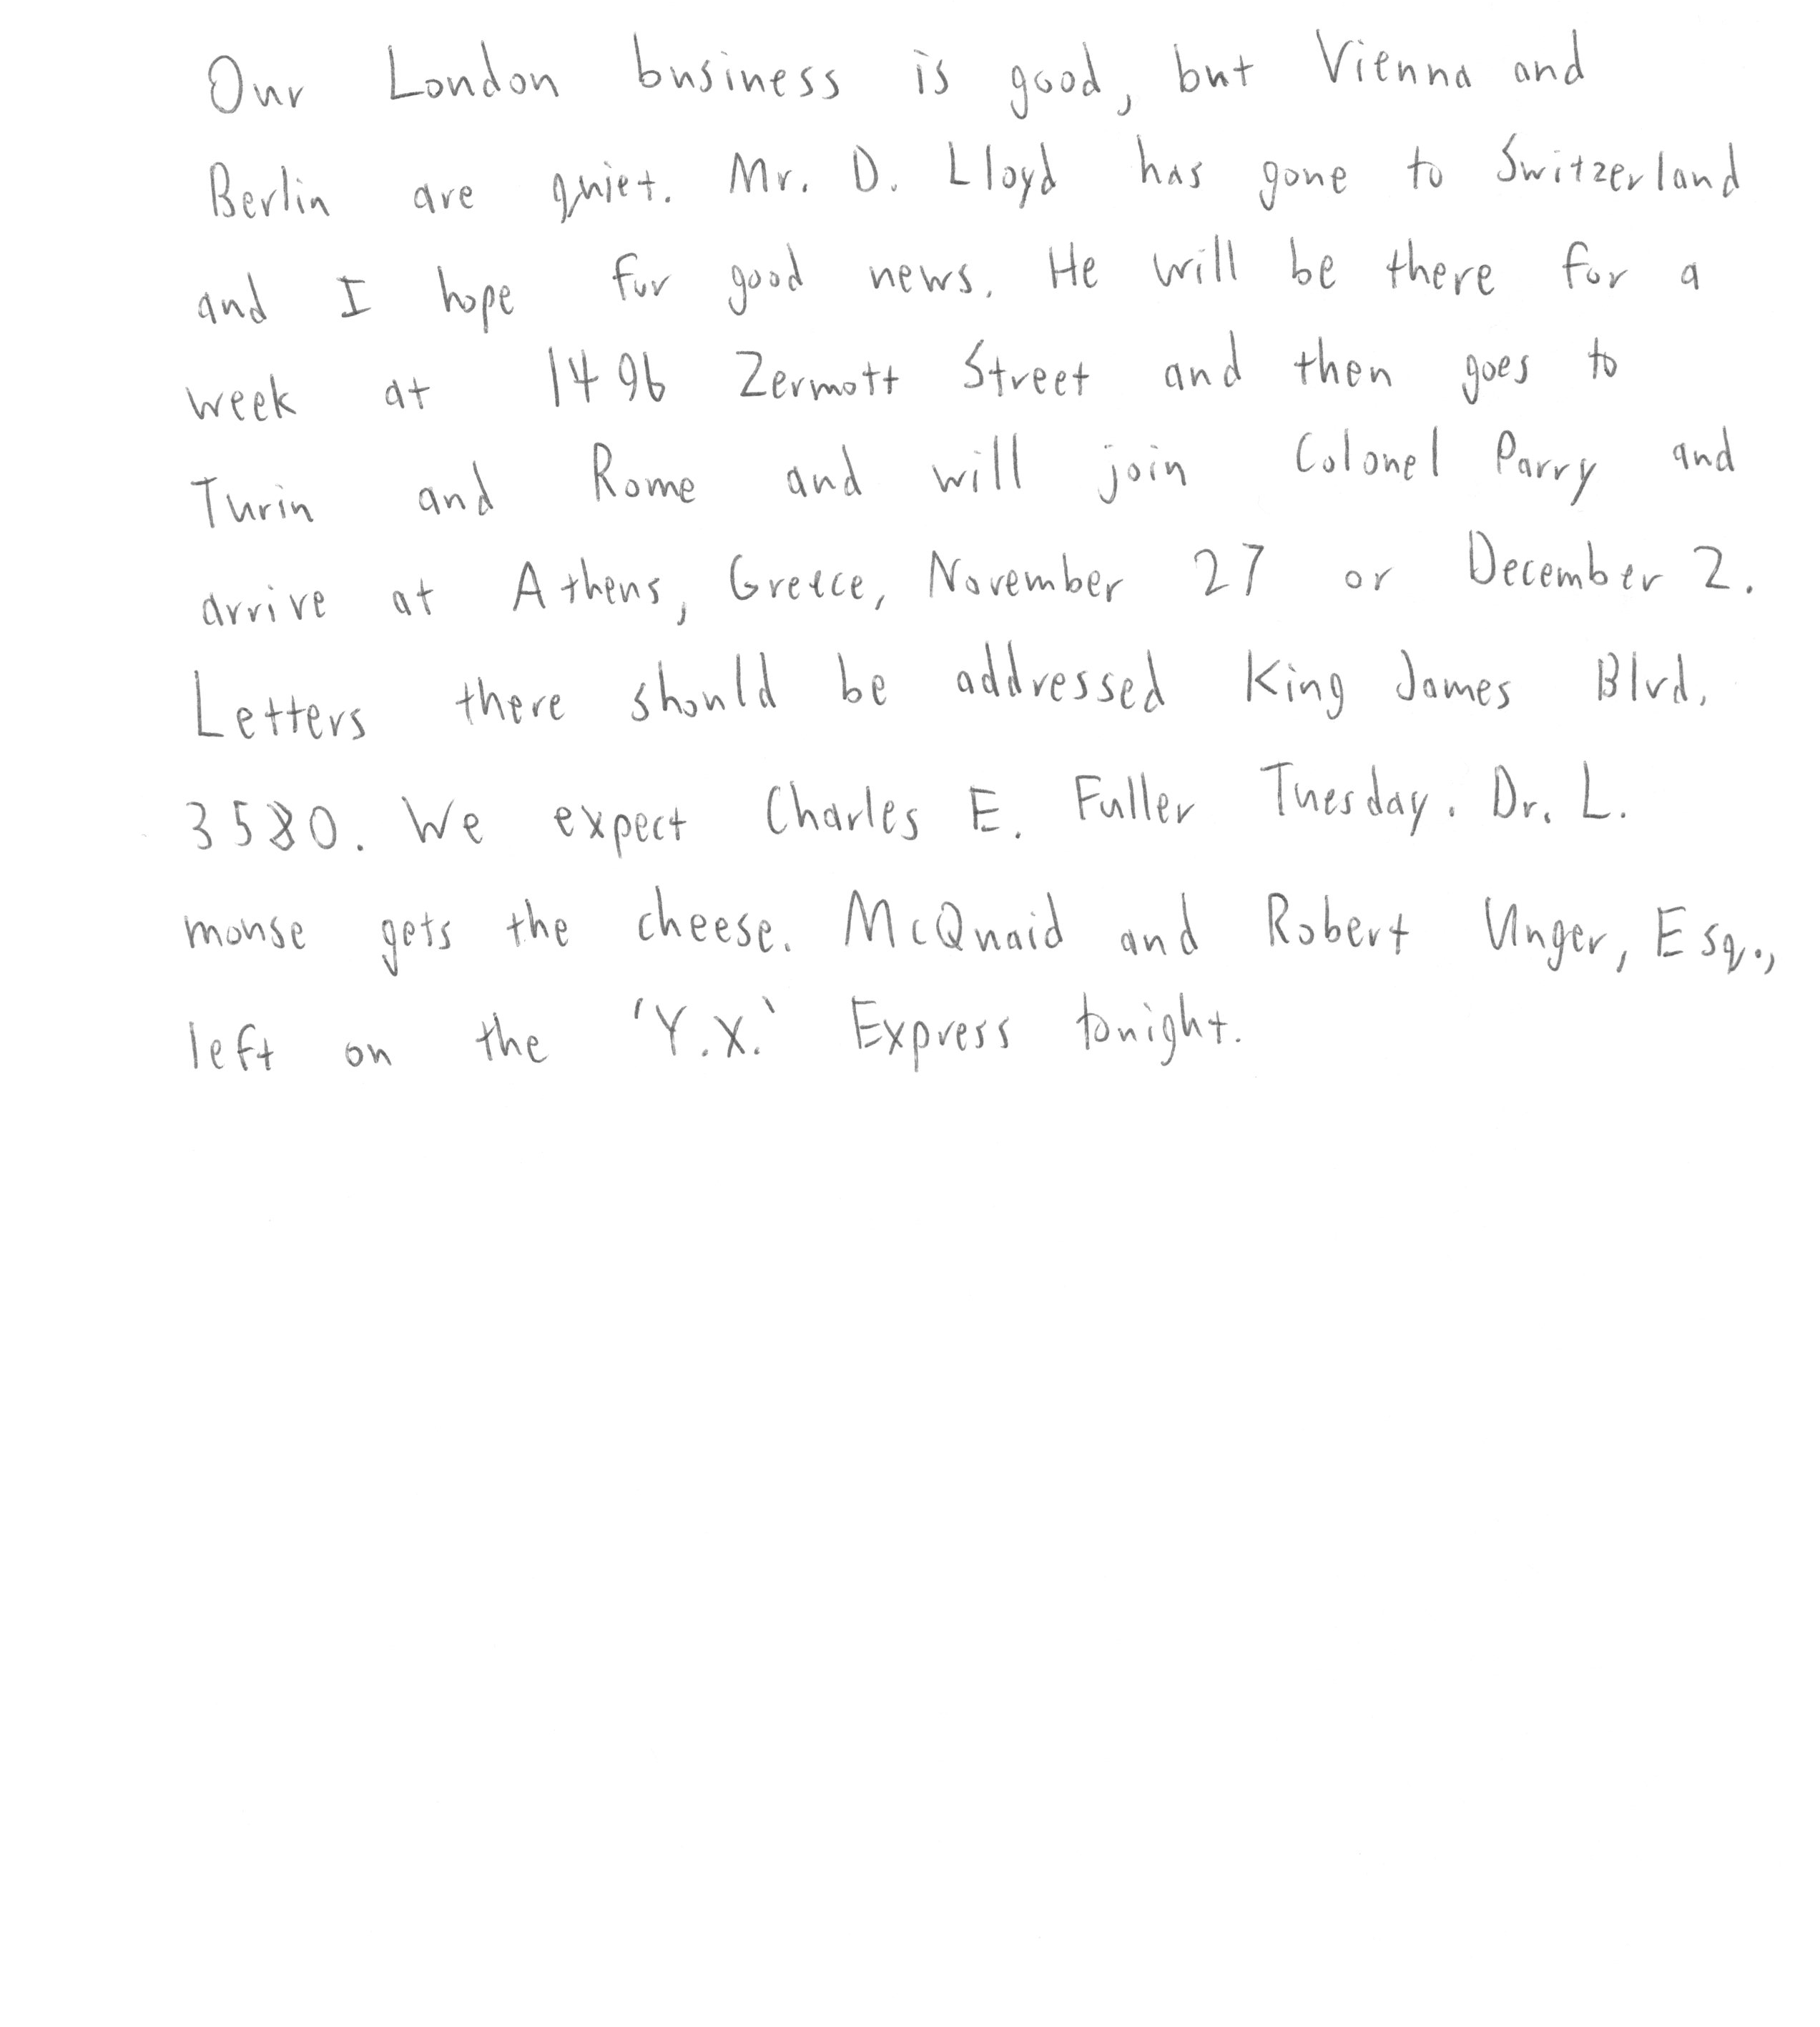 Our London business is good, but Vienna and
Berlin are quiet. Mr. D. Lloyd has gone to Switzerland
and I hope for good news. He will be there for a
week at 1496 Zermott Street and then goes to
Turin and Rome and will join Colonel Parry and
arrive at Athens, Greece, November 27 or December 2.
Letters there should be addressed King James Blvd.
3580. We expect Charles E. Fuller Tuesday. Dr. L.
mouse gets the cheese. McQuaid and Robert Unger, Esq.,
left on the 'Y.X.' Express tonight.